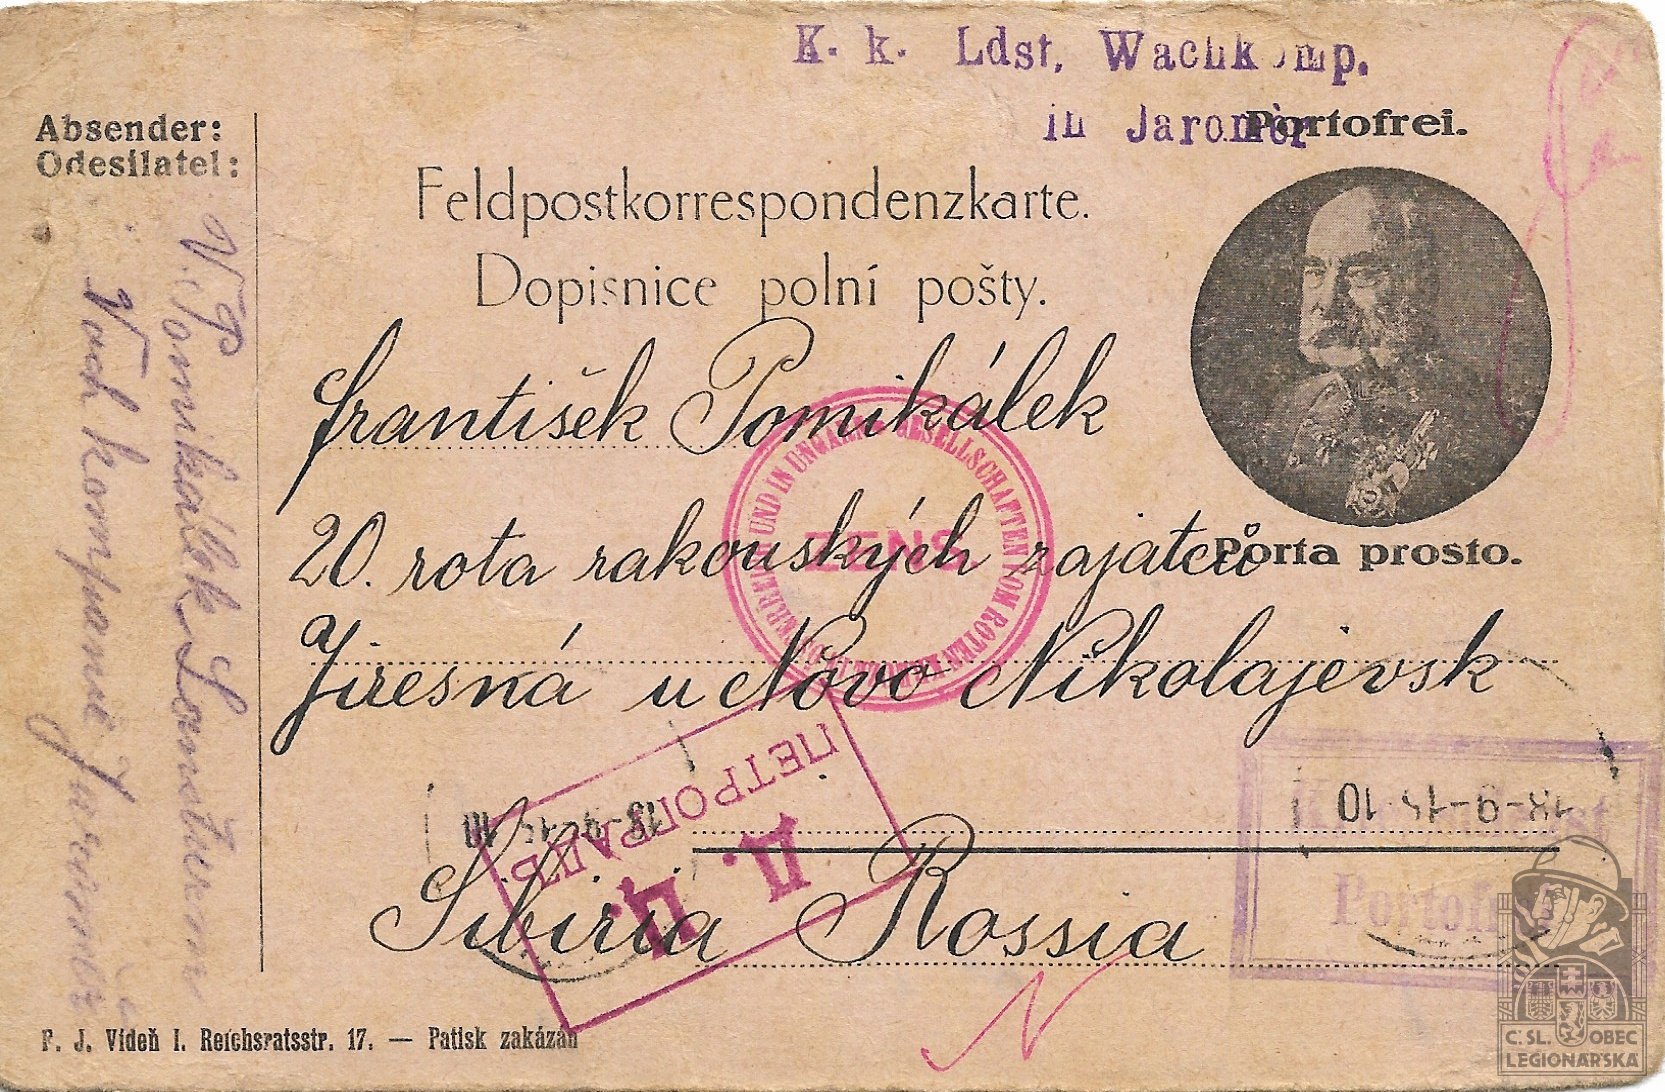 K. k. Ldst. Wachkomp.
in Jaroměr
Absender:
Odesilatel:
Portofrei.
Feldpostkorrespondenzkarte.
Dopisnice polní pošty.
V. Pomikálek Landsturm
Vach kompanie
František Pomikálek
20. rota rakouských zajatců
Porta prosto.
Jiresná u Novo Nikolajevsk
Sibiria Rossia
ZENS
UND IN UNGARN GESELLSCHAFTEN VOM ROTEN
ПЕТРОГРАДЪ
Д. Ц.
18-9-15 10
18-9-15
Portofrei
N
F. J. Vídeň I. Reichsratsstr. 17. — Patisk zakázán
Č. SL. OBEC
LEGIONÁŘSKÁ